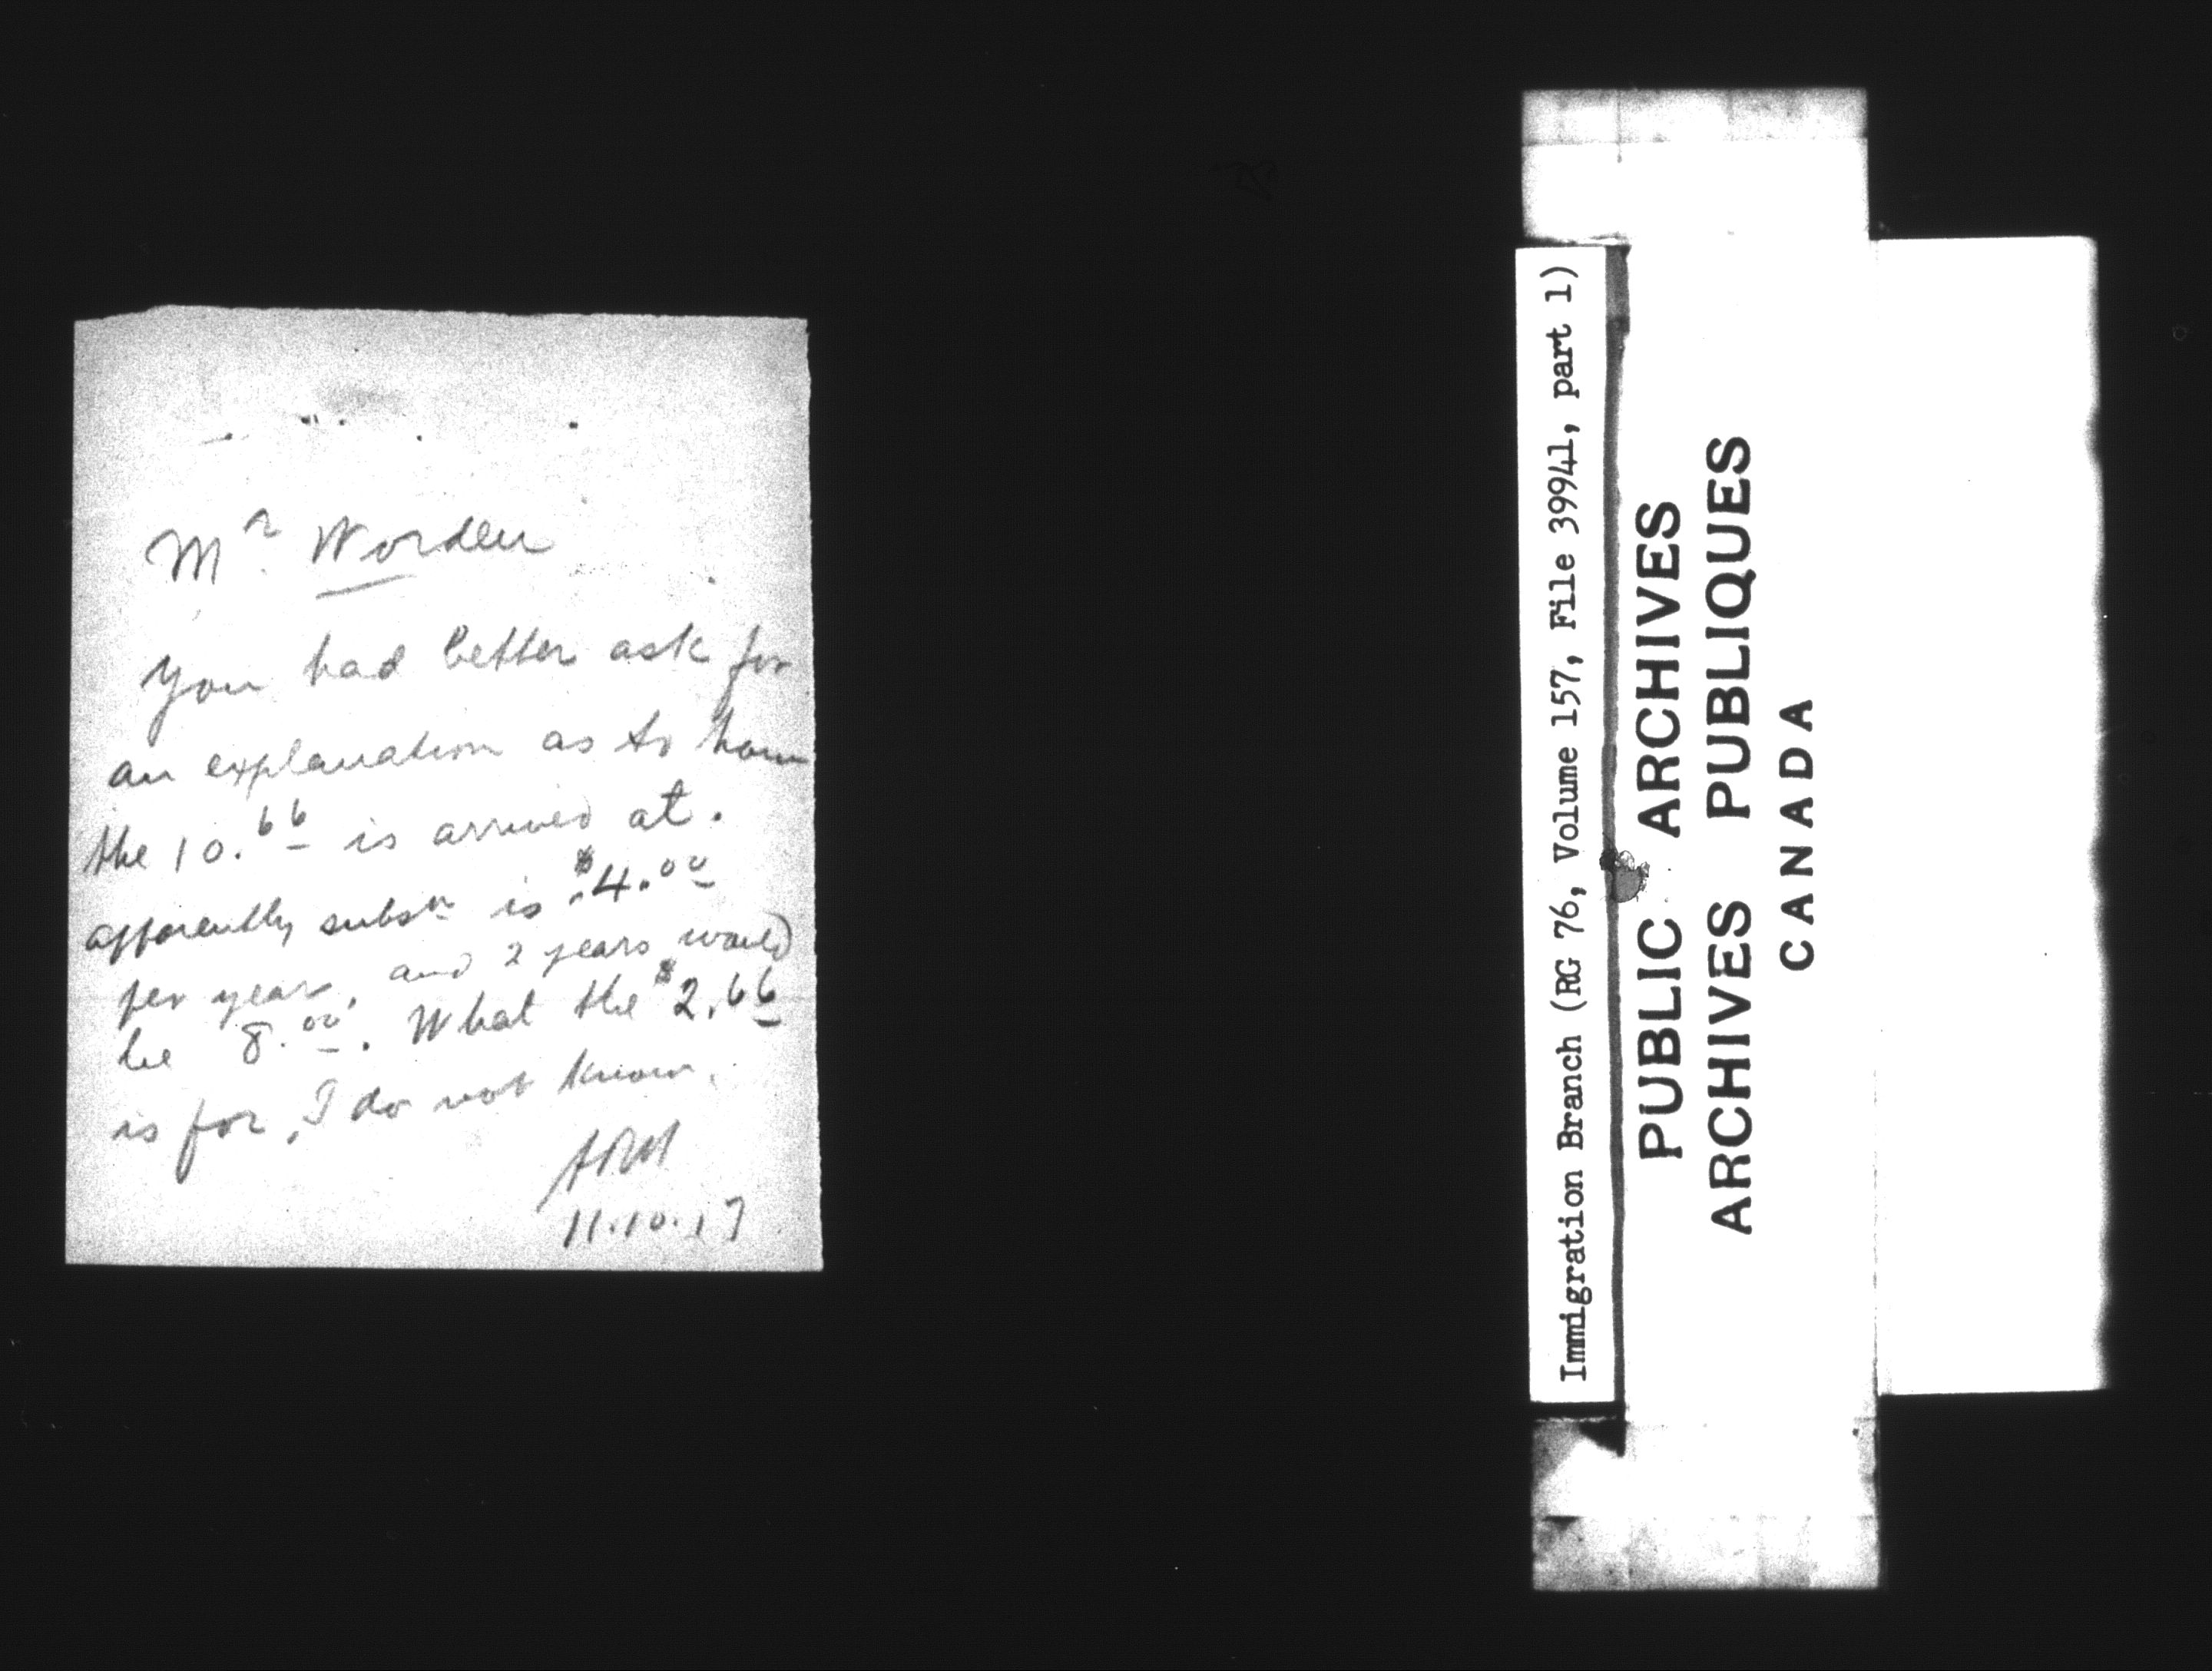 Mr Worden
you had better ask for
an explanation as to how
the 10.66 is arrived at.
apparently subsn is $4.00
per year, and 2 years would
be 8.00. What the $2.66
is for, I do not know.
11.10.17
Immigration Branch (RG 76, Volume 157, File 39941, part 1)
PUBLIC ARCHIVES
ARCHIVES PUBLIQUES
CANADA